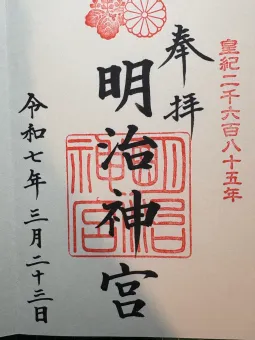 皇紀二千六百八十五年
奉拝
明治神宮
明治
神宮
令和七年三月二十三日